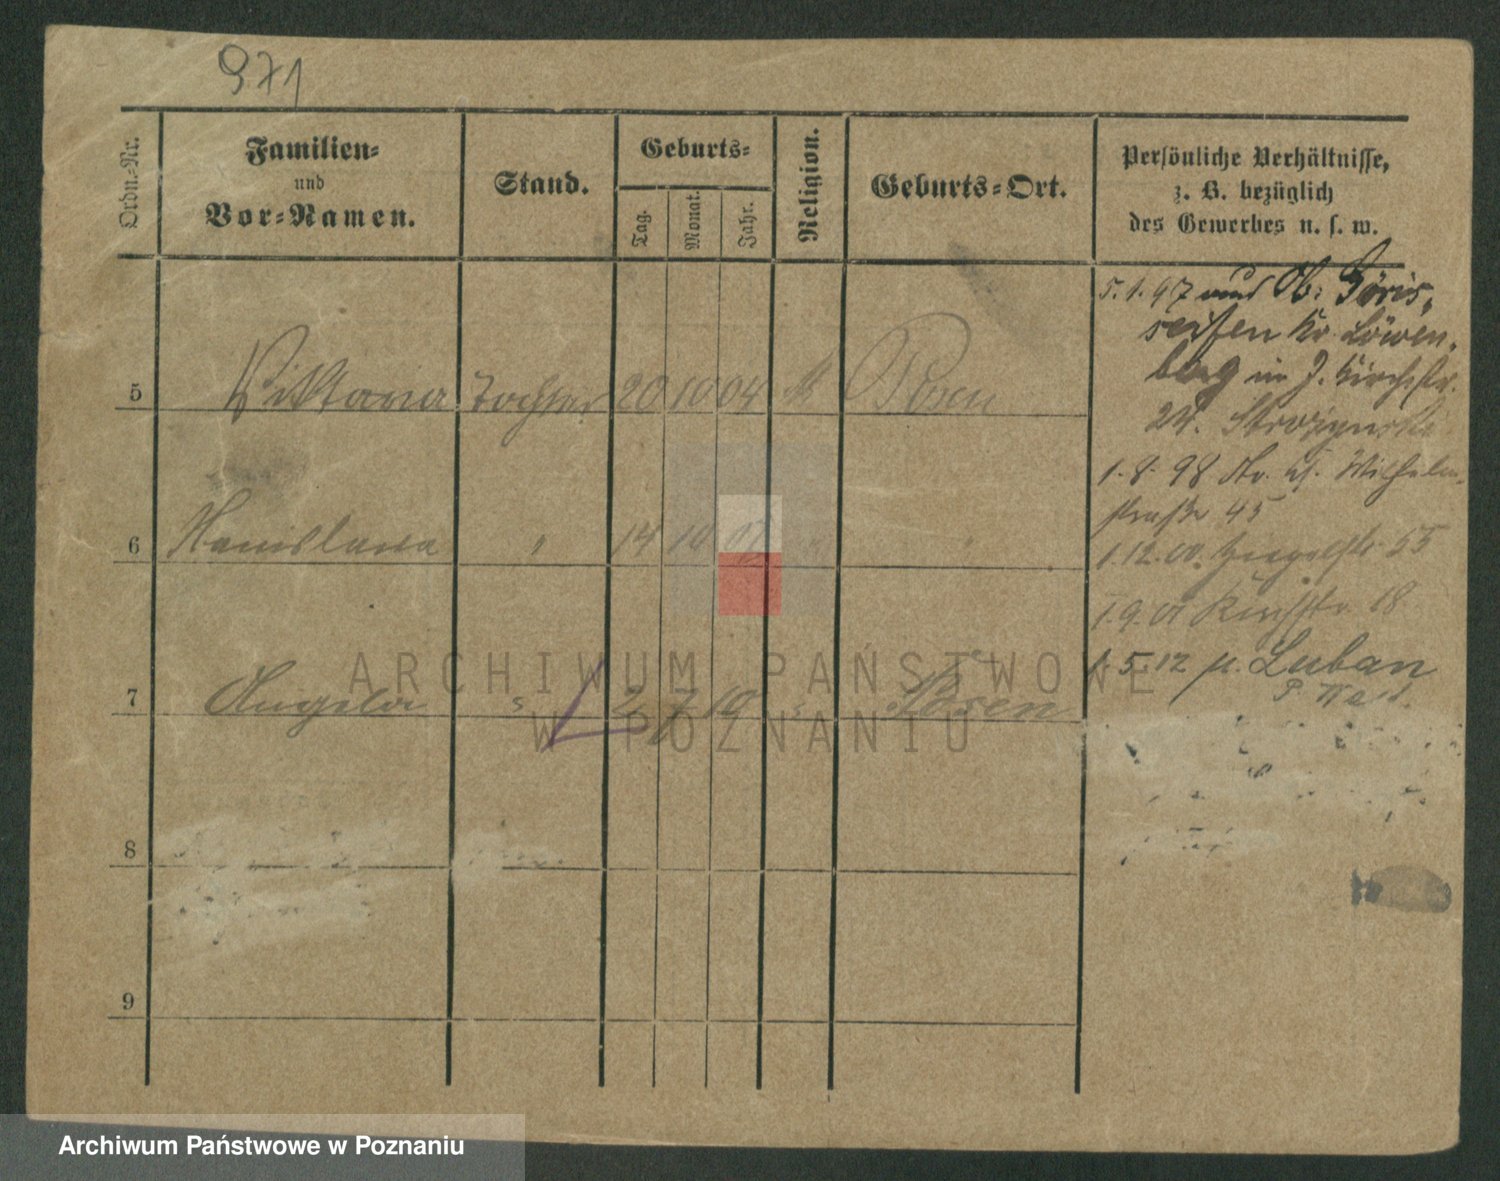 971
Ordn.-Nr.
Familien-
und
Vor-Namen.
Stand.
Geburts-
Tag.
Monat.
Jahr.
Religion.
Geburts-Ort.
Persönliche Verhältnisse,
z. B. bezüglich
des Gewerbes u. s. w.
5 Viktoria Tochter 20 10 04 k Posen
6 Stanislawa " 14 10 " "
7 Angela " 2 7 10 " Posen
8
9
5.1.97 Ob: Göris,
seifen Kr. Löwen,
berg J. Kirchstr.
24.
1.8.98 Wilhelm,
straße 45
1.12.00. 55
1.9.01 Kirchstr. 18
1.5.12 Luban
P. West.
ARCHIWUM PAŃSTWOWE
W POZNANIU
Archiwum Państwowe w Poznaniu